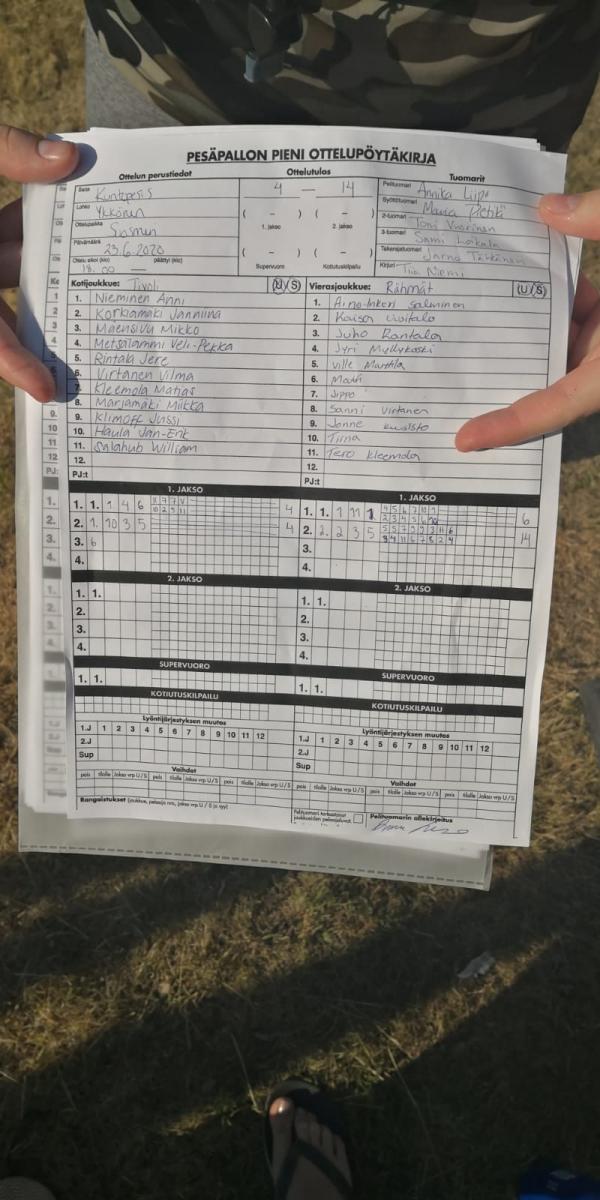 PESÄPALLON PIENI OTTELUPÖYTÄKIRJA
Ottelun perustiedot Ottelutulos Tuomarit
Sarja Kuntopesis
Lohko Ykkönen
Ottelupaikka
Päivämäärä 23.6.2020
Ottelu alkoi (klo) 18.00 päättyi (klo) —
4 — 14
( – ) ( – )
1. jakso 2. jakso
( – ) ( – )
Supervuoro Kotiutuskilpailu
Pelituomari Annika Liipo
Syöttötuomari
2-tuomari Toni Vuorinen
3-tuomari Sami
Takarajatuomari Jarno
Kirjuri Tiia Niemi
Kotijoukkue: Tivoli U/S
1. Nieminen Anni
2. Korkiamäki Janniina
3. Maensivu Mikko
4. Metsälammi Veli-Pekka
5. Rintala Jere
6. Virtanen Vilma
7. Kleemola Matias
8. Marjamäki Miikka
9. Klimoff Jussi
10. Haula Jan-Erik
11. Salahub William
12.
PJ:t
Vierasjoukkue: Rähmät U/S
1. Aino-Inkeri Salminen
2. Kaisa Uusitalo
3. Juho Rantala
4. Jyri Myllykoski
5. Ville Marttila
6. Matti
7. Jippo
8. Sanni Virtanen
9. Janne
10. Tiina
11. Tero Kleemola
12.
PJ:t
1. JAKSO
1. 1. 1 4 6 4
2. 1. 10 3 5 4
3. 6
4.
2. JAKSO
1. 1.
2.
3.
4.
SUPERVUORO
1. 1.
KOTIUTUSKILPAILU
Lyöntijärjestyksen muutos
1.J 1 2 3 4 5 6 7 8 9 10 11 12
2.J
Sup
Vaihdot
pois tilalle Jakso vrp U/S pois tilalle Jakso vrp U/S pois tilalle Jakso vrp U/S
Rangaistukset (joukkue, pelaaja nro, jakso vrp U / S ja syy)
1. JAKSO
1. 1. 1 11 1 6
2. 2. 2 3 5 14
3.
4.
2. JAKSO
1. 1.
2.
3.
4.
SUPERVUORO
1. 1.
KOTIUTUSKILPAILU
Lyöntijärjestyksen muutos
1.J 1 2 3 4 5 6 7 8 9 10 11 12
2.J
Sup
Vaihdot
pois tilalle Jakso vrp U/S pois tilalle Jakso vrp U/S pois tilalle Jakso vrp U/S
Pelituomari tarkastanut
joukkueiden pelaajaluvat
Pelituomarin allekirjoitus